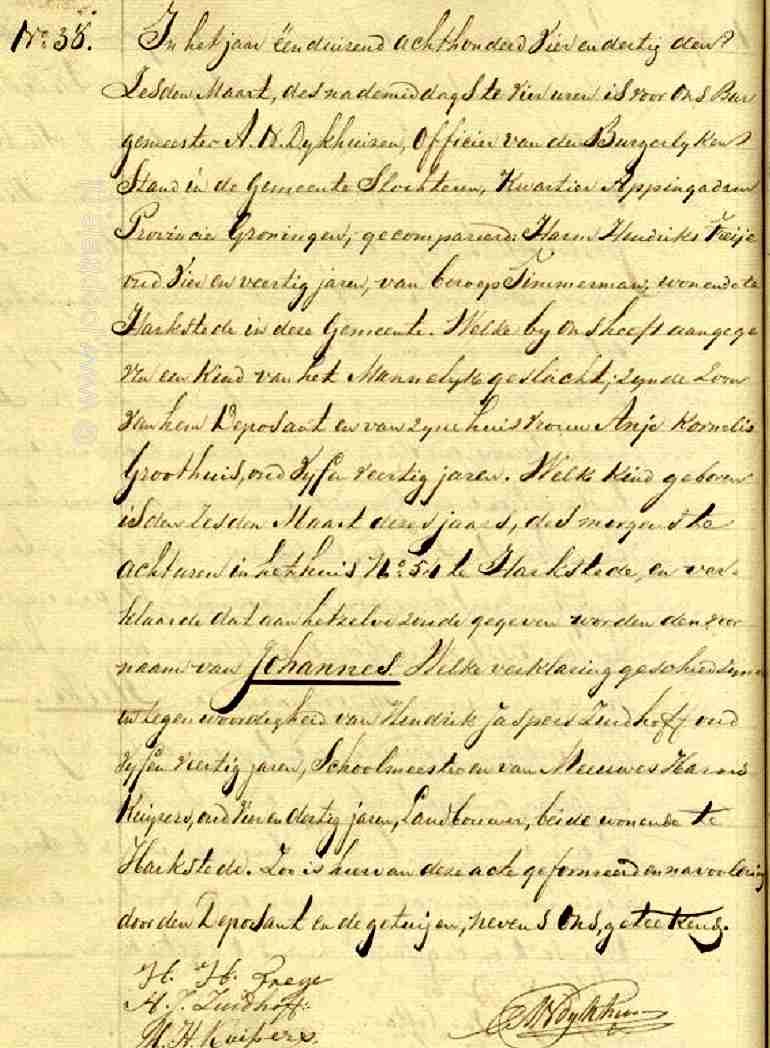 No. 38. In het jaar een duizend achthonderd Vier en dertig den
Zesden Maart, des nademiddags te vier uren is voor Ons Bur
gemeester A. N. Dykhuizen, Officier van den Burgerlyken
Stand in de Gemeente Slochteren, Kwartier Appingadam
Provincie Groningen, gecompareerd: Harm Hendriks Freije
oud Vier en veertig jaren, van beroep Timmerman, wonende te
Harkstede in deze Gemeente. Welke by ons heeft aangege
ven een Kind van het Mannelyk geslacht, zynde Zoon
van hem Deposant en van zyne huisvrouw Anje Kornelis
Groothuis, oud Vyf en Veertig jaren. Welk Kind geboren
is den Zesden Maart dezes jaars, des morgens te
acht uren in het huis No. 54 te Harkstede, en ver-
klaarde dat aan hetzelve zoude gegeven worden den voor
naam van Johannes. Welke verklaring geschied is
in tegenwoordigheid van Hendrik Jaspers Zuidhoff oud
Vyf en Veertig jaren, Schoolmeester en van Meeuwes Harms
Kuipers, oud Vier en dertig jaren, Landbouwer, beide wonende te
Harkstede. Zoo is hiervan deze acte geformeerd en na voorlezing
door den Deposant en de getuigen, nevens Ons, geteekend.
H. H. Freije
H. J. Zuidhoff
M. H. Kuipers